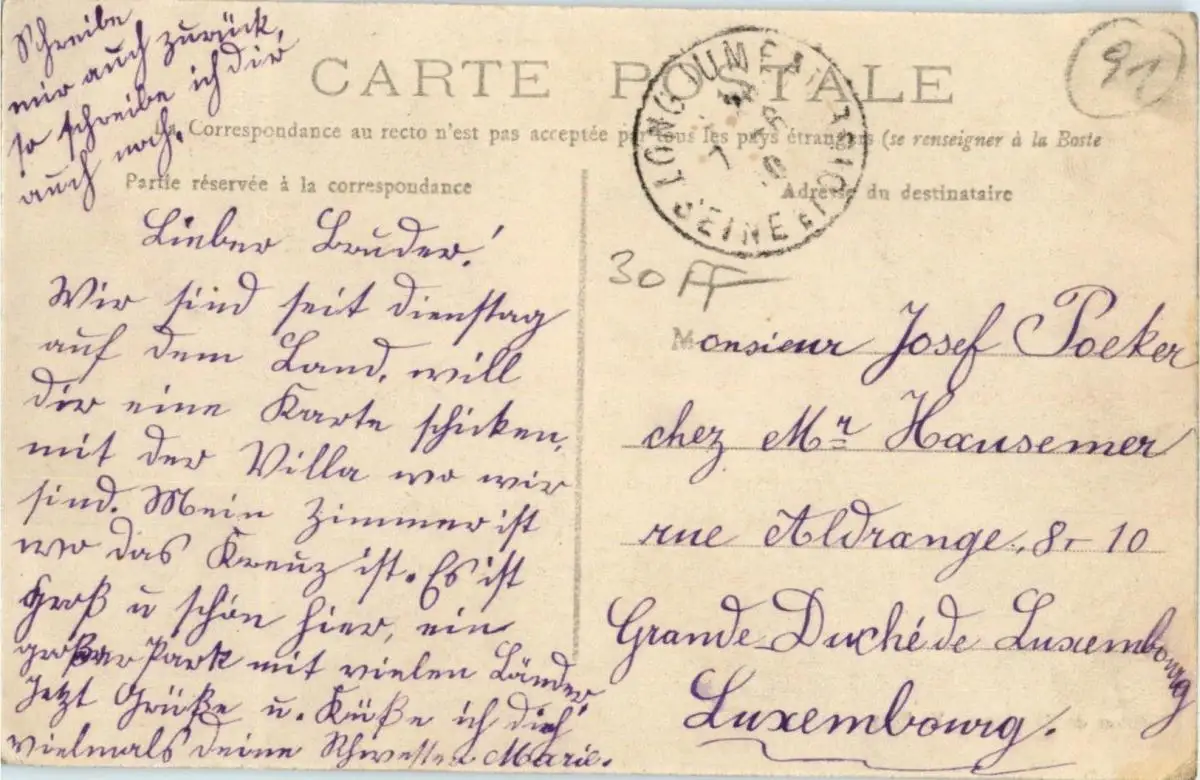 Schreibe
mir auch zurück,
so schreibe ich dir
auch noch.
CARTE POSTALE
La Correspondance au recto n'est pas acceptée par tous les pays étrangers (se renseigner à la Poste
Partie réservée à la correspondance
Adresse du destinataire
LONGJUMEAU
SEINE ET OISE
91
30 FF
Lieber Bruder!
Wir sind seit dienstag
auf dem Land, will
dir eine Karte schicken,
mit der Villa wo wir
sind. Mein Zimmer ist
wo das Kreuz ist. Es ist
groß u schön hier, ein
großer Park mit vielen Länder
Jetzt Grüße u. Küße ich dich
vielmals deine Schwester Marie.
Monsieur Josef Poeker
chez Mr Hausemer
rue Aldrange, 8-10
Grande Duché de Luxembourg
Luxembourg.